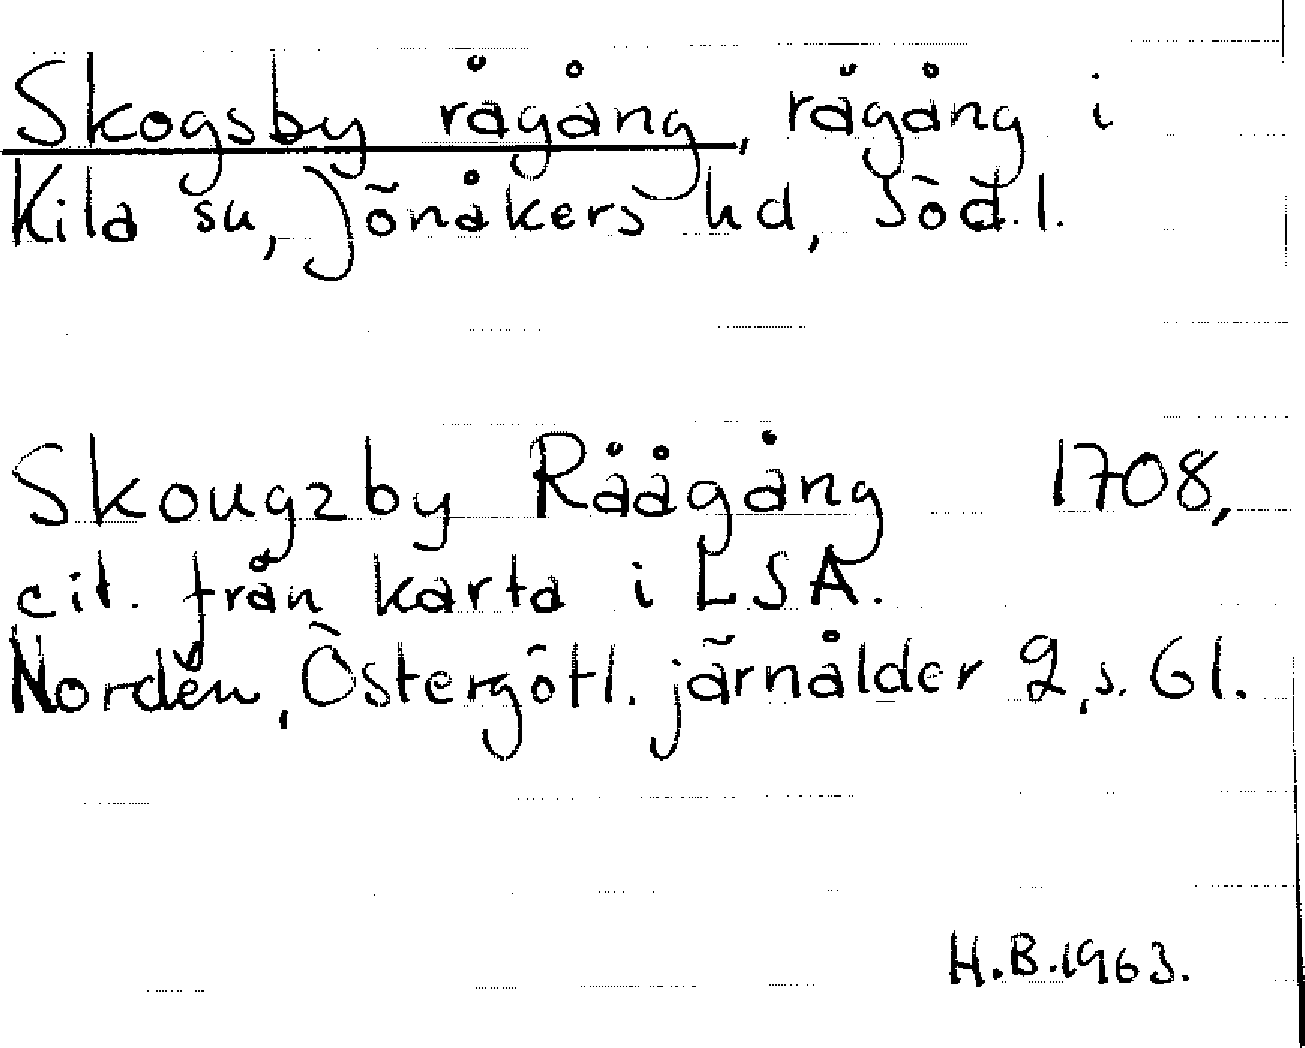 Skogsby rågång, rågång i
Kila sn, Jönåkers hd, Söd.l.
Skougzby Råågång 1708,
cit. från karta i LSA.
Nordén, Östergötl. järnålder 2, s. 61.
H.B.1963.